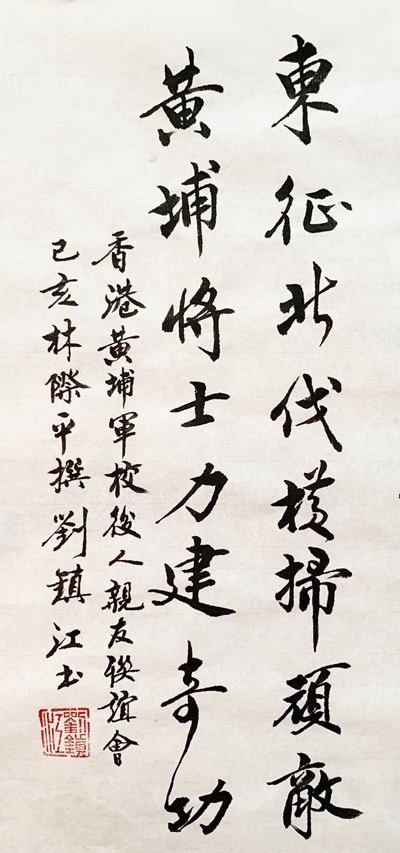 東征北伐橫掃頑敵
黃埔將士力建奇功
香港黃埔軍校後人親友聯誼會
己亥林際平撰劉鎮江书
劉鎮江